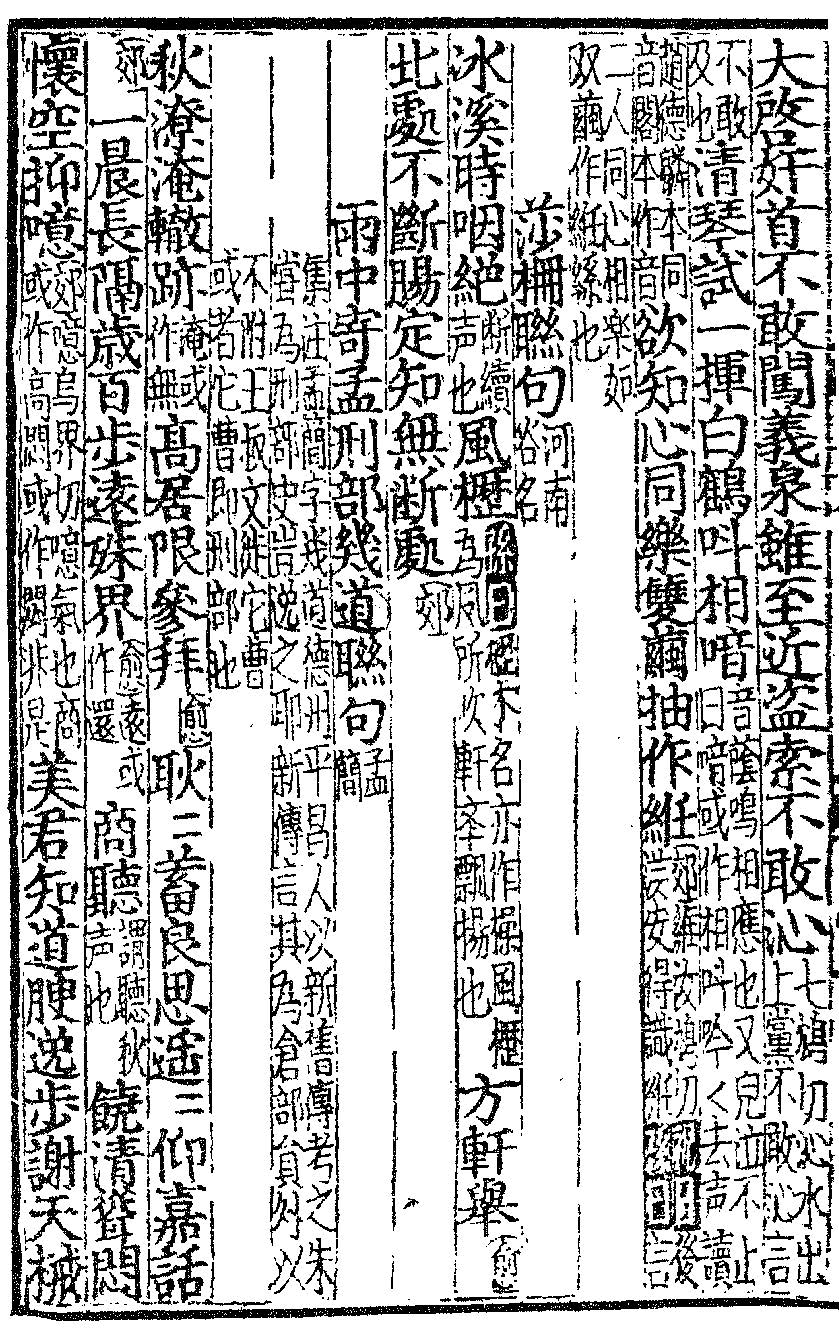 大啓姧首不敢闖義泉雖至近盜索不敢沁七鴆切沁水出上黨不敢沁言
不敢及也清琴試一揮白鶴呌相喑音蔭鳴相應也又兒泣不止曰喑或作相呌吟吟去声讀
趙德麟本同音閣本作音欲知心同樂雙繭抽作絍郊絍汝鴆切後言
二人同心相樂如双繭作絍絲也
莎柵聯句河南谷名
冰溪時咽絶断續声也風櫪櫪木名亦作操風櫪為風所吹軒卒飄揚也方軒舉愈
北處不斷腸定知無断處郊
雨中寄孟刑部幾道聯句孟簡
集注孟簡字幾道德州平昌人以新舊傳考之朱嘗為刑部史豈逸之耶新傳言其為倉部員外以
不附王叔文徙它曹或者它曹即刑部也
秋潦淹轍跡淹或作無高居限參拜愈耿二蓄良思遥二仰嘉話
郊一晨長隔歳百步遠殊界愈遠或作還商聽謂聽秋声也饒清聳悶
懷空抑噫郊噫烏界切噫氣也商或作高悶或作闕非是美君知道腴逸步謝天械